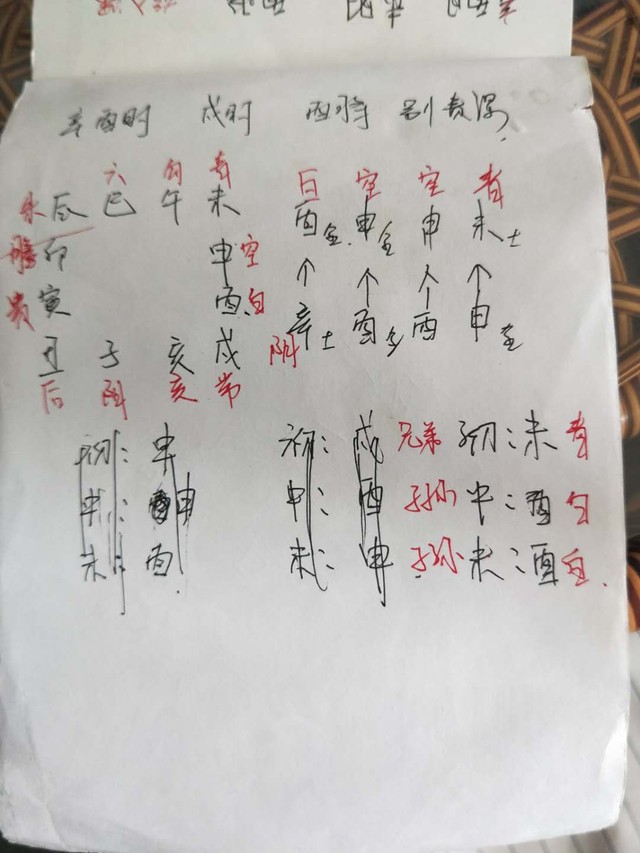 辛酉时 戌时 酉将 别责课
六 勾 青 白 空 空 青
朱 辰 巳 午 未 酉金 申金 申 未土
卯 申 空
↑ ↑ ↑ ↑
贵 寅 酉 白 辛土 酉 酉 申金
丑 子 亥 戌 阴
后 阴 亥 常
初: 申 初: 戌 兄弟 初: 未 青
中: 申 中: 酉 子孙 中: 酉
末: 酉 末: 申 子孙 末: 酉 白